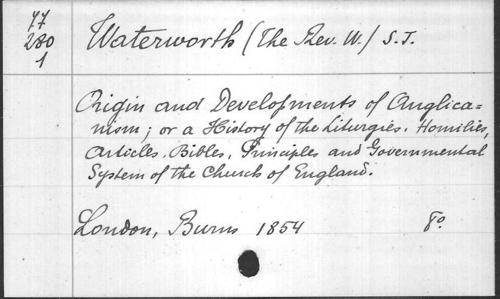 77
280
1
Waterworth (The Rev. W.) S. J.
Origin and Developments of Anglica=
nism; or a History of the Liturgies, Homilies,
Articles, Bibles, Principles and Governmental
System of the Church of England.
London, Burns 1854 8o.